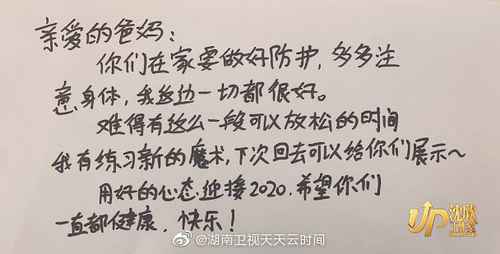 亲爱的爸妈:
你们在家要做好防护,多多注
意身体,我这边一切都很好。
难得有这么一段可以放松的时间
我有练习新的魔术,下次回去可以给你们展示~
用好的心态迎接2020.希望你们
一直都健康,快乐!
UP
@湖南卫视天天云时间